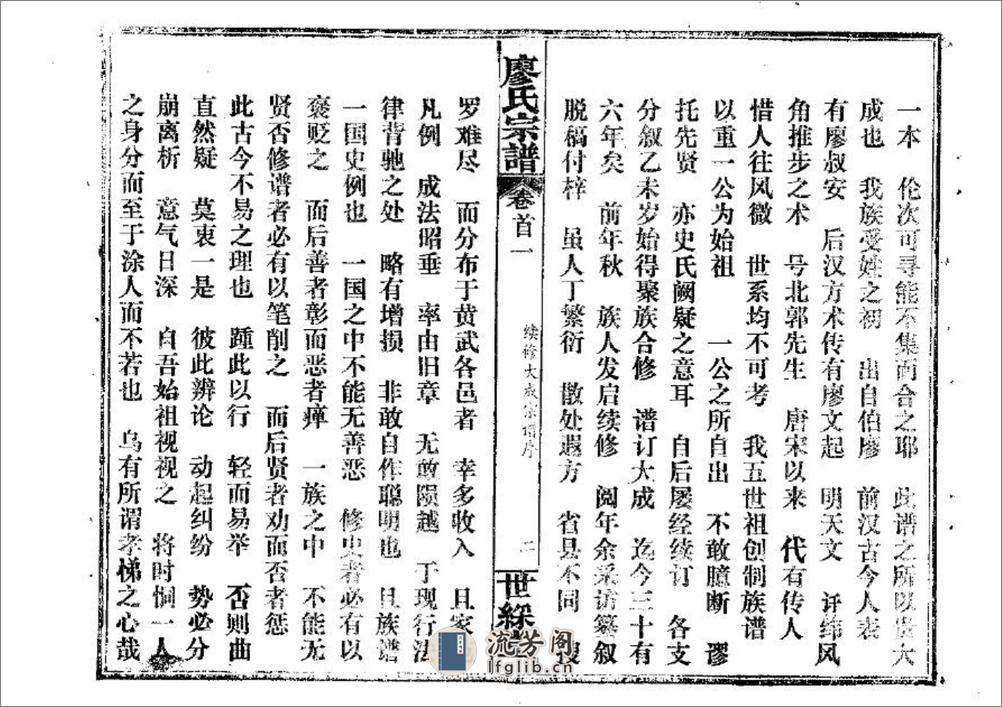 一本　伦次可寻能不集而合之耶　此谱之所以贵大
成也　我族受姓之初　出自伯廖　前汉古今人表
有廖叔安　后汉方术传有廖文起　明天文　详纬风
角推步之术　号北郭先生　唐宋以来　代有传人
惜人往风微　世系均不可考　我五世祖创制族谱
以重一公为始祖　一公之所自出　不敢臆断　谬
托先贤　亦史氏阙疑之意耳　自后屡经续订　各支
分叙乙未岁始得聚族合修　谱订大成　迄今三十有
六年矣　前年秋　族人发启续修　阅年余采访纂叙
脱稿付梓　虽人丁繁衍　散处遐方　省县不同　搜
廖氏宗譜
卷首一
续修大成宗谱序
二
世綵
罗难尽　而分布于黄武各邑者　幸多收入　且家
凡例　成法昭垂　率由旧章　无敢陨越　于现行法
律背驰之处　略有增损　非敢自作聪明也　且族谱
一国史例也　一国之中不能无善恶　修史者必有以
褒贬之　而后善者彰而恶者瘅　一族之中　不能无
贤否修谱者必有以笔削之　而后贤者劝而否者惩
此古今不易之理也　踵此以行　轻而易举　否则曲
直然疑　莫衷一是　彼此辨论　动起纠纷　势必分
崩离析　意气日深　自吾始祖视视之　将时恫一人
之身分而至于涂人而不若也　乌有所谓孝悌之心哉
流芳阁
lfglib.cn